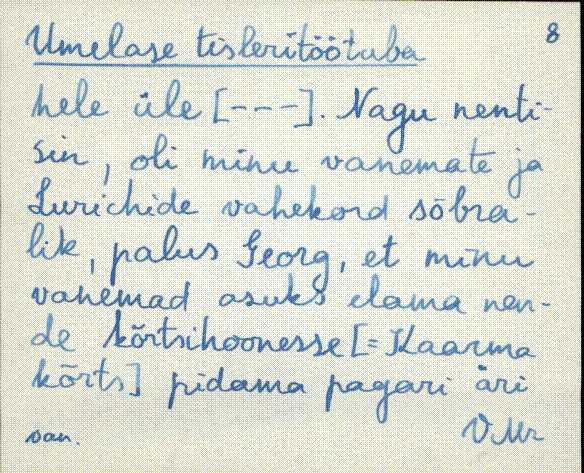 8
Umelase tisleritöötuba
hele üle [---]. Nagu nenti-
sin, oli minu vanemate ja
Lurichide vahekord sõbra-
lik, palus Georg, et minu
vanemad asuks elama nen-
de kõrtsihoonesse [= Kaarma
kõrts] pidama pagari äri
van. V Mr